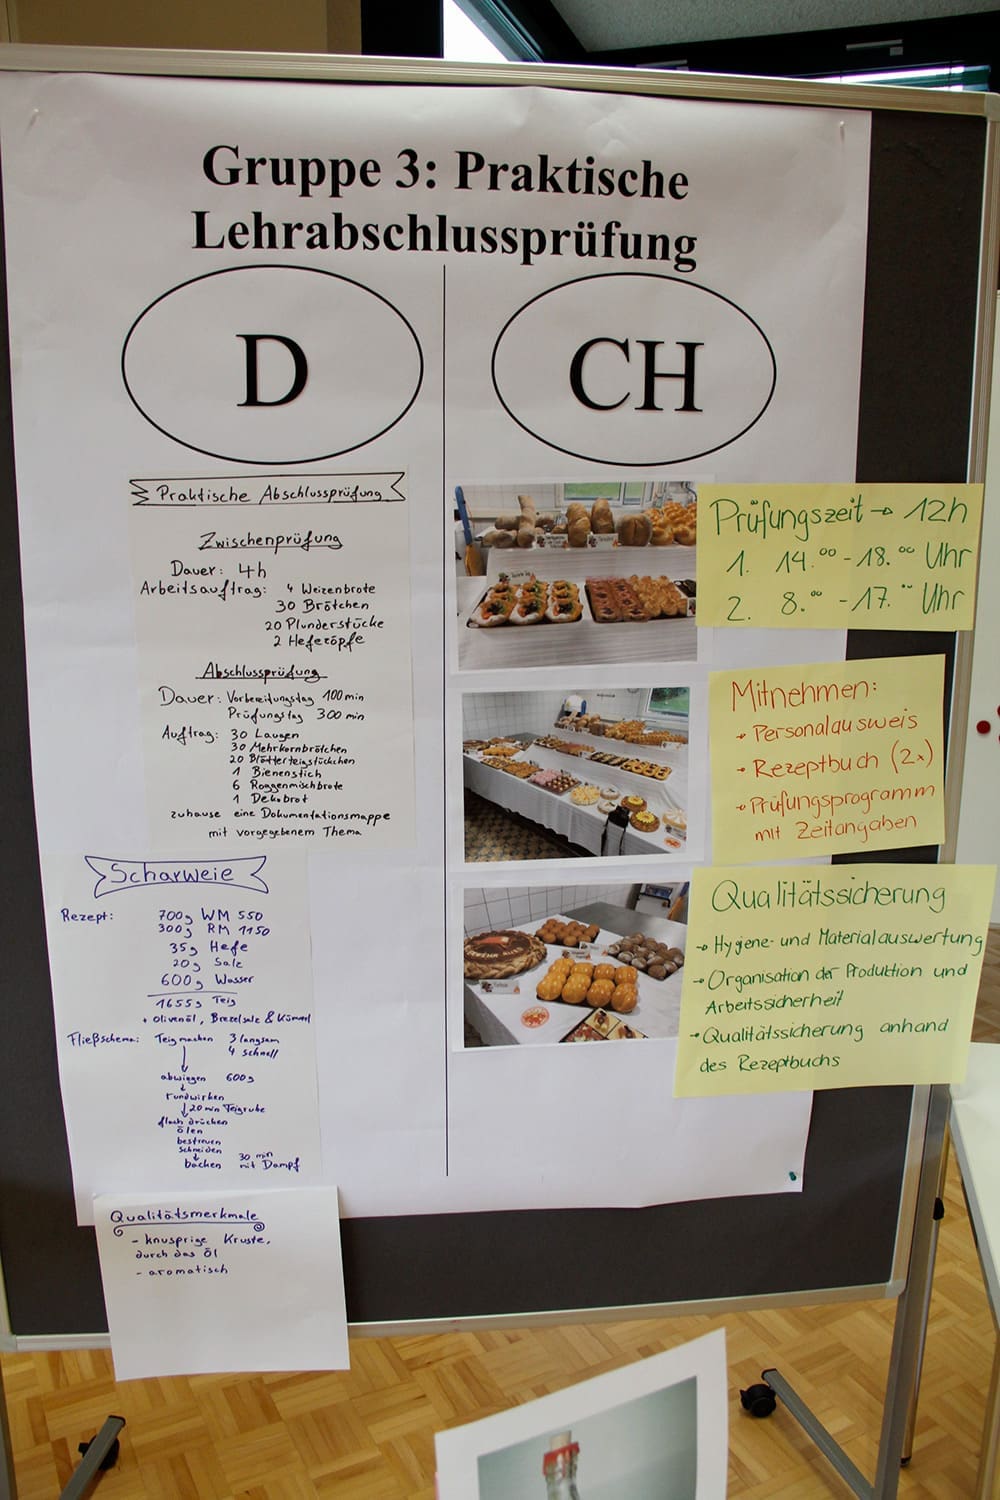 Gruppe 3: Praktische
Lehrabschlussprüfung
D
Praktische Abschlussprüfung
Zwischenprüfung
Dauer: 4h
Arbeitsauftrag: 4 Weizenbrote
30 Brötchen
20 Plunderstücke
2 Hefezöpfe
Abschlussprüfung
Dauer: Vorbereitungstag 100 min
Prüfungstag 300 min
Auftrag: 30 Laugen
30 Mehrkornbrötchen
20 Blätterteigstückchen
1 Bienenstich
6 Roggenmischbrote
1 Dekobrot
zuhause eine Dokumentationsmappe
mit vorgegebenem Thema
Scharweie
Rezept: 700g WM 550
300g RM 1150
35g Hefe
20g Salz
600g Wasser
1655g Teig
+ Olivenöl, Brezelsalz & Kümmel
Fließschema: Teig machen 3 langsam
4 schnell
abwiegen 600g
rundwirken
20 min Teigruhe
flach drücken
ölen
bestreuen
schneiden
backen 30 min
mit Dampf
Qualitätsmerkmale
- knusprige Kruste,
durch das Öl
- aromatisch
CH
Prüfungszeit → 12h
1. 14.00 - 18.00 Uhr
2. 8.00 - 17.00 Uhr
Mitnehmen:
→ Personalausweis
→ Rezeptbuch (2x)
→ Prüfungsprogramm
mit Zeitangaben
Qualitätssicherung
→ Hygiene- und Materialauswertung
→ Organisation der Produktion und
Arbeitssicherheit
→ Qualitätssicherung anhand
des Rezeptbuchs